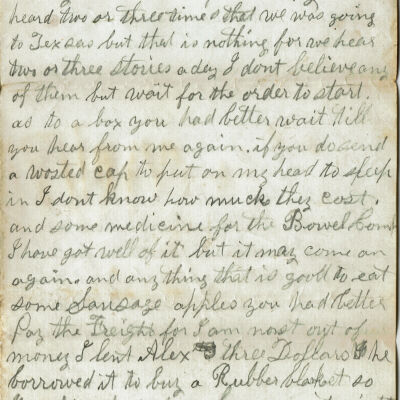 heard two or three times that we was going
to Texsas but that is nothing for we hear
two or three stories a day I dont believe any
of them but wait for the order to start.
as to a box you had better wait till
you hear from me again. if you do send
a wosted cap to put on my head to sleep
in I dont know how much they cost.
and some medicine for the Bowel Comp
I have got well of it but it may come on
again. and any thing that is good to eat
some Sausage apples you had better
Pay the Freight for I am most out of
money I lent Alex three Dollars he
borrowed it to buy a Rubber blanket so